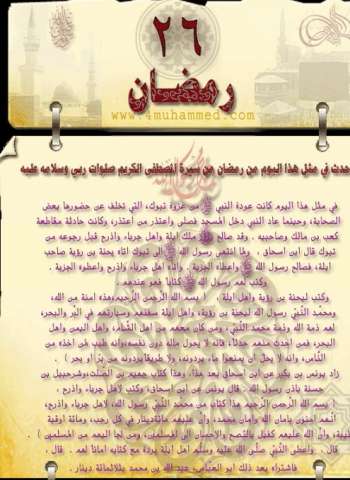 ٢٦
رمضان
www.4muhammed.com
حدث في مثل هذا اليوم من رمضان من سيرة المصطفى الكريم صلوات ربي وسلامه عليه
في مثل هذا اليوم كانت عودة النبي ﷺ من غزوة تبوك، التي تخلف عن حضورها بعض
الصحابة، وحينما عاد النبي دخل المسجد فصلى واعتذر من أعتذر، وكانت حادثة مقاطعة
كعب بن مالك وصاحبيه . وقد صالح ﷺ ملك ايلة واهل جرباء واذرح قبل رجوعه من
تبوك قال ابن إسحاق ، ولما انتهى رسول الله ﷺ الى تبوك اتاه يحنة بن رؤبة صاحب
ايلة، فصالح رسول الله ﷺ واعطاه الجزية . واتاه اهل جرباء واذرح واعطوه الجزية .
وكتب لهم رسول الله ﷺ كتابا فهو عندهم
وكتب ليحنة بن رؤبة واهل ايلة . بسم الله الرحمن الرحيم وهذه امنة من الله،
ومحمد النبي رسول الله ليحنة بن رؤبة، واهل ايلة سفنهم وسيارتهم في البر والبحر،
لهم ذمة الله وذمة محمد النبي، ومن كان معهم من اهل الشام، واهل اليمن واهل
البحر، فمن احدث منهم حدثا، فانه لا يحول ماله دون نفسه، وانه طيب لمن اخذه من
الناس، وانه لا يحل ان يمنعوا ماء يردونه، ولا طريقا يردونه من بر أو بحر ) .
زاد يونس بن بكير عن ابن اسحاق بعد هذا، وهذا كتاب جهيم بن الصلت، وشرحبيل بن
حسنة باذن رسول الله . قال يونس عن ابن اسحاق، وكتب لاهل جرباء واذرح .
( بسم الله الرحمن الرحيم هذا كتاب من محمد النبي رسول الله، لاهل جرباء واذرح،
انهم امنون بامان الله وامان محمد، وان عليهم مائة دينار في كل رجب، ومائة اوقية
طيبة، وان الله عليهم كفيل بالنصح والاحسان الى المسلمين، ومن لجأ اليهم من المسلمين ) .
قال . واعطى النبي صلى الله عليه وسلم اهل ايلة بردة مع كتابه امانا لهم . قال .
فاشتراه بعد ذلك ابو العباس عبد الله بن محمد بثلاثمائة دينار .